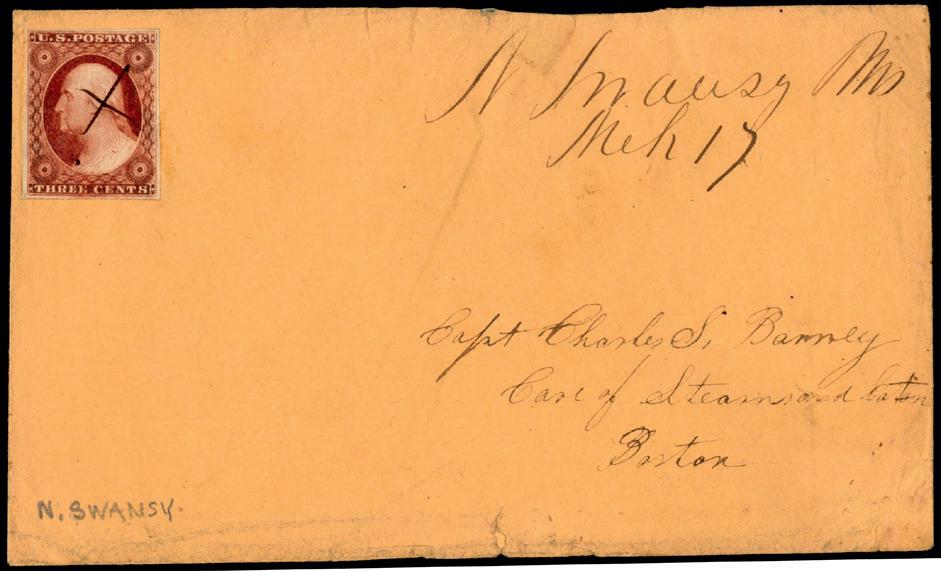 U.S. POSTAGE
THREE CENTS
N Swansy Ms
Mch 17
Capt Charles S. Barney
Care of Stearns and Eaton
Boston
N. SWANSY.